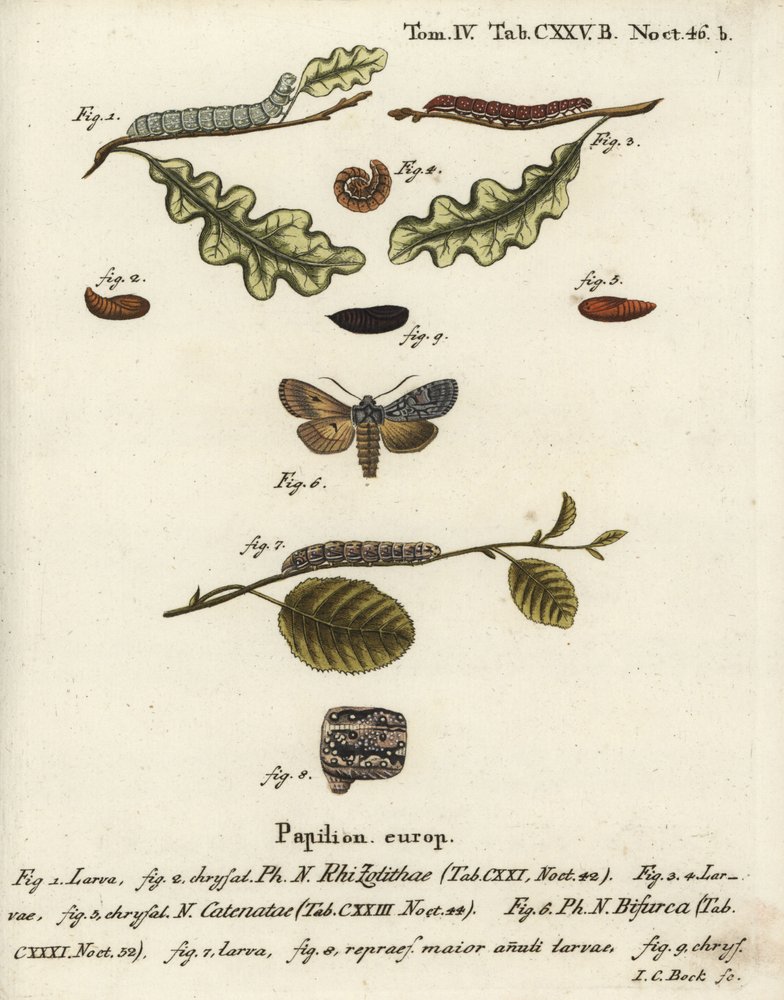 Tom.IV. Tab.CXXV.B. Noct.46. b.
Fig.1.
Fig.3.
Fig.4.
fig.2.
fig.5.
fig.9.
Fig.6.
fig.7.
fig.8.
Papilion. europ.
Fig 1. Larva, fig. 2, chryſal. Ph. N. Rhizolithae (Tab.CXXI, Noct.42). Fig.3.4.Lar-
vae, fig.5, chryſal. N. Catenatae (Tab.CXXIII Noct.44). Fig.6. Ph. N. Bifurca (Tab.
CXXXI.Noct.52), fig. 7, larva, fig. 8, repraeſ. maior añuli larvae, fig. 9, chryſ.
I.C. Bock ſc.